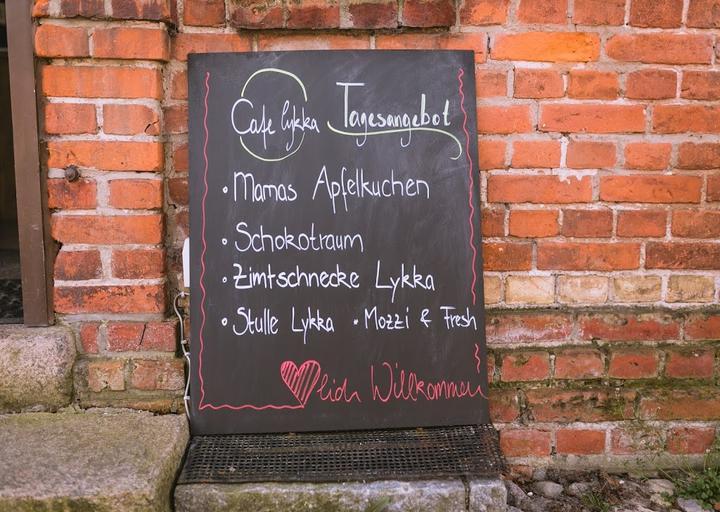 Cafe lykka Tagesangebot
• Mamas Apfelkuchen
• Schokotraum
• Zimtschnecke Lykka
• Stulle Lykka • Mozzi & Fresh
♥lich Willkommen